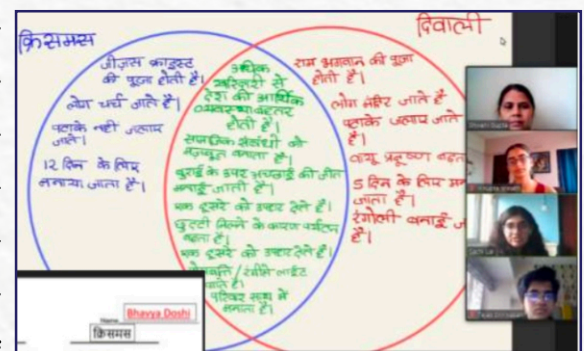 क्रिसमस
दिवाली
जीज़स क्राइस्ट
की पूजा होती है।
लोग चर्च जाते है।
पटाके नही जलाए
जाते।
12 दिन के लिए
मनाया जाता है।
अधिक
खरीदारी से
देश की आर्थिक
व्यवस्था बहतर
होती है।
सामाजिक संबंधों को
मज़बूत बनाता है।
बुराई के उपर अच्छाई की जीत
मनाई जाती है।
एक दूसरे को उपहार देते है।
छुट्टी मिलने के कारण पर्यटन
बढ़ता है।
एक दूसरे को उपहार देते है।
/ रंगीले लाईट
परिवार साथ में
मनाता है।
राम भगवान की पूजा
होती है।
लोग मंदिर जाते है
पटाके जलाए जाते
है।
वायु प्रदूषण
5 दिन के लिए
जाता है।
रंगोली बनाई
है।
Bhavya Doshi
क्रिसमस